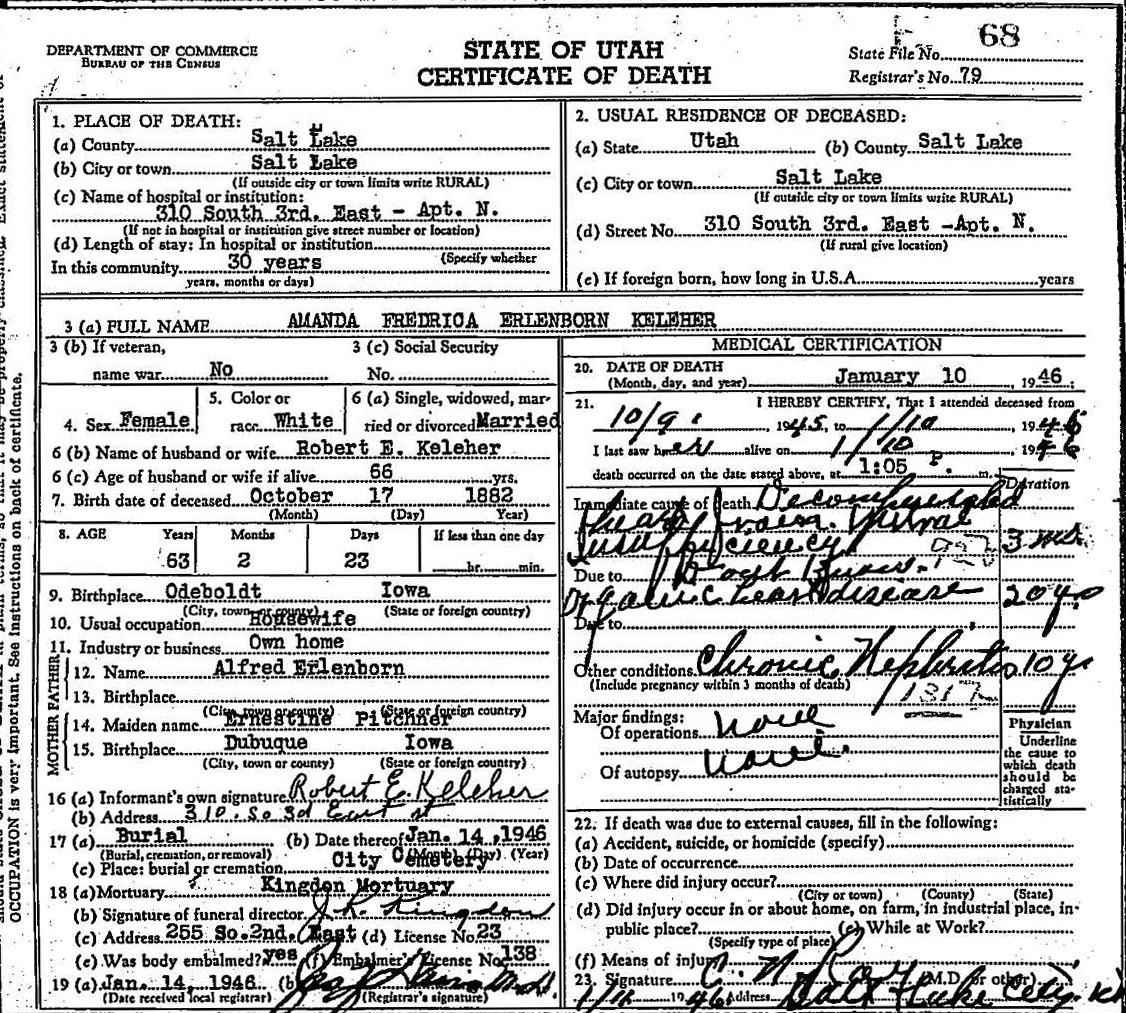 68
DEPARTMENT OF COMMERCE
BUREAU OF THE CENSUS
STATE OF UTAH
CERTIFICATE OF DEATH
State File No.
Registrar's No. 79
1. PLACE OF DEATH:
(a) County Salt Lake
(b) City or town Salt Lake
(If outside city or town limits write RURAL)
(c) Name of hospital or institution:
310 South 3rd. East - Apt. N.
(If not in hospital or institution give street number or location)
(d) Length of stay: In hospital or institution
(Specify whether
In this community 30 years
years, months or days)
2. USUAL RESIDENCE OF DECEASED:
(a) State Utah (b) County Salt Lake
(c) City or town Salt Lake
(If outside city or town limits write RURAL)
(d) Street No. 310 South 3rd. East -Apt. N.
(If rural give location)
(e) If foreign born, how long in U.S.A. years
3 (a) FULL NAME AMANDA FREDRICA ERLENBORN KELEHER
3 (b) If veteran, 3 (c) Social Security
name war No No.
4. Sex Female 5. Color or race White 6 (a) Single, widowed, married or divorced Married
6 (b) Name of husband or wife Robert E. Keleher
6 (c) Age of husband or wife if alive 66 yrs.
7. Birth date of deceased October 17 1882
(Month) (Day) Year)
8. AGE Years Months Days If less than one day
63 2 23 hr. min.
9. Birthplace Odeboldt Iowa
(City, town or county) (State or foreign country)
10. Usual occupation Housewife
11. Industry or business Own home
FATHER
12. Name Alfred Erlenborn
13. Birthplace
(City, town or county) (State or foreign country)
MOTHER
14. Maiden name Ernestine Pitchner
15. Birthplace Dubuque Iowa
(City, town or county) (State or foreign country)
16 (a) Informant's own signature Robert E. Keleher
(b) Address 310. So 3d East st
17 (a) Burial (b) Date thereof Jan. 14, 1946
(Burial, cremation, or removal) (Month) (Day) (Year)
(c) Place: burial or cremation City Cemetery
18 (a) Mortuary Kingdon Mortuary
(b) Signature of funeral director J. R. Kingdon
(c) Address 255 So. 2nd. East (d) License No. 23
(e) Was body embalmed? yes (f) Embalmer's License No. 138
19 (a) Jan. 14, 1946 (b) M.D.
(Date received local registrar) (Registrar's signature)
MEDICAL CERTIFICATION
20. DATE OF DEATH
(Month, day, and year) January 10, 1946;
21. I HEREBY CERTIFY, That I attended deceased from
10/9, 1945, to 1/10 1946
I last saw her alive on 1/10 1946
death occurred on the date stated above, at 1:05 P. m.
Duration
Immediate cause of death Decompensated
heart Mitral
Insufficiency 3 mos
Due to
Organic heart disease 20 yrs
Due to
Other conditions Chronic Nephritis 10 yr
(Include pregnancy within 3 months of death)
Major findings:
Of operations None
Of autopsy None.
Physician
Underline
the cause to
which death
should be
charged sta-
tistically
22. If death was due to external causes, fill in the following:
(a) Accident, suicide, or homicide (specify)
(b) Date of occurrence
(c) Where did injury occur?
(City or town) (County) (State)
(d) Did injury occur in or about home, on farm, in industrial place, in
public place? (e) While at Work?
(Specify type of place)
(f) Means of injury
23. Signature (M.D. or other)
1946 Address Salt Lake City
OCCUPATION is very important. See instructions on back of certificate.